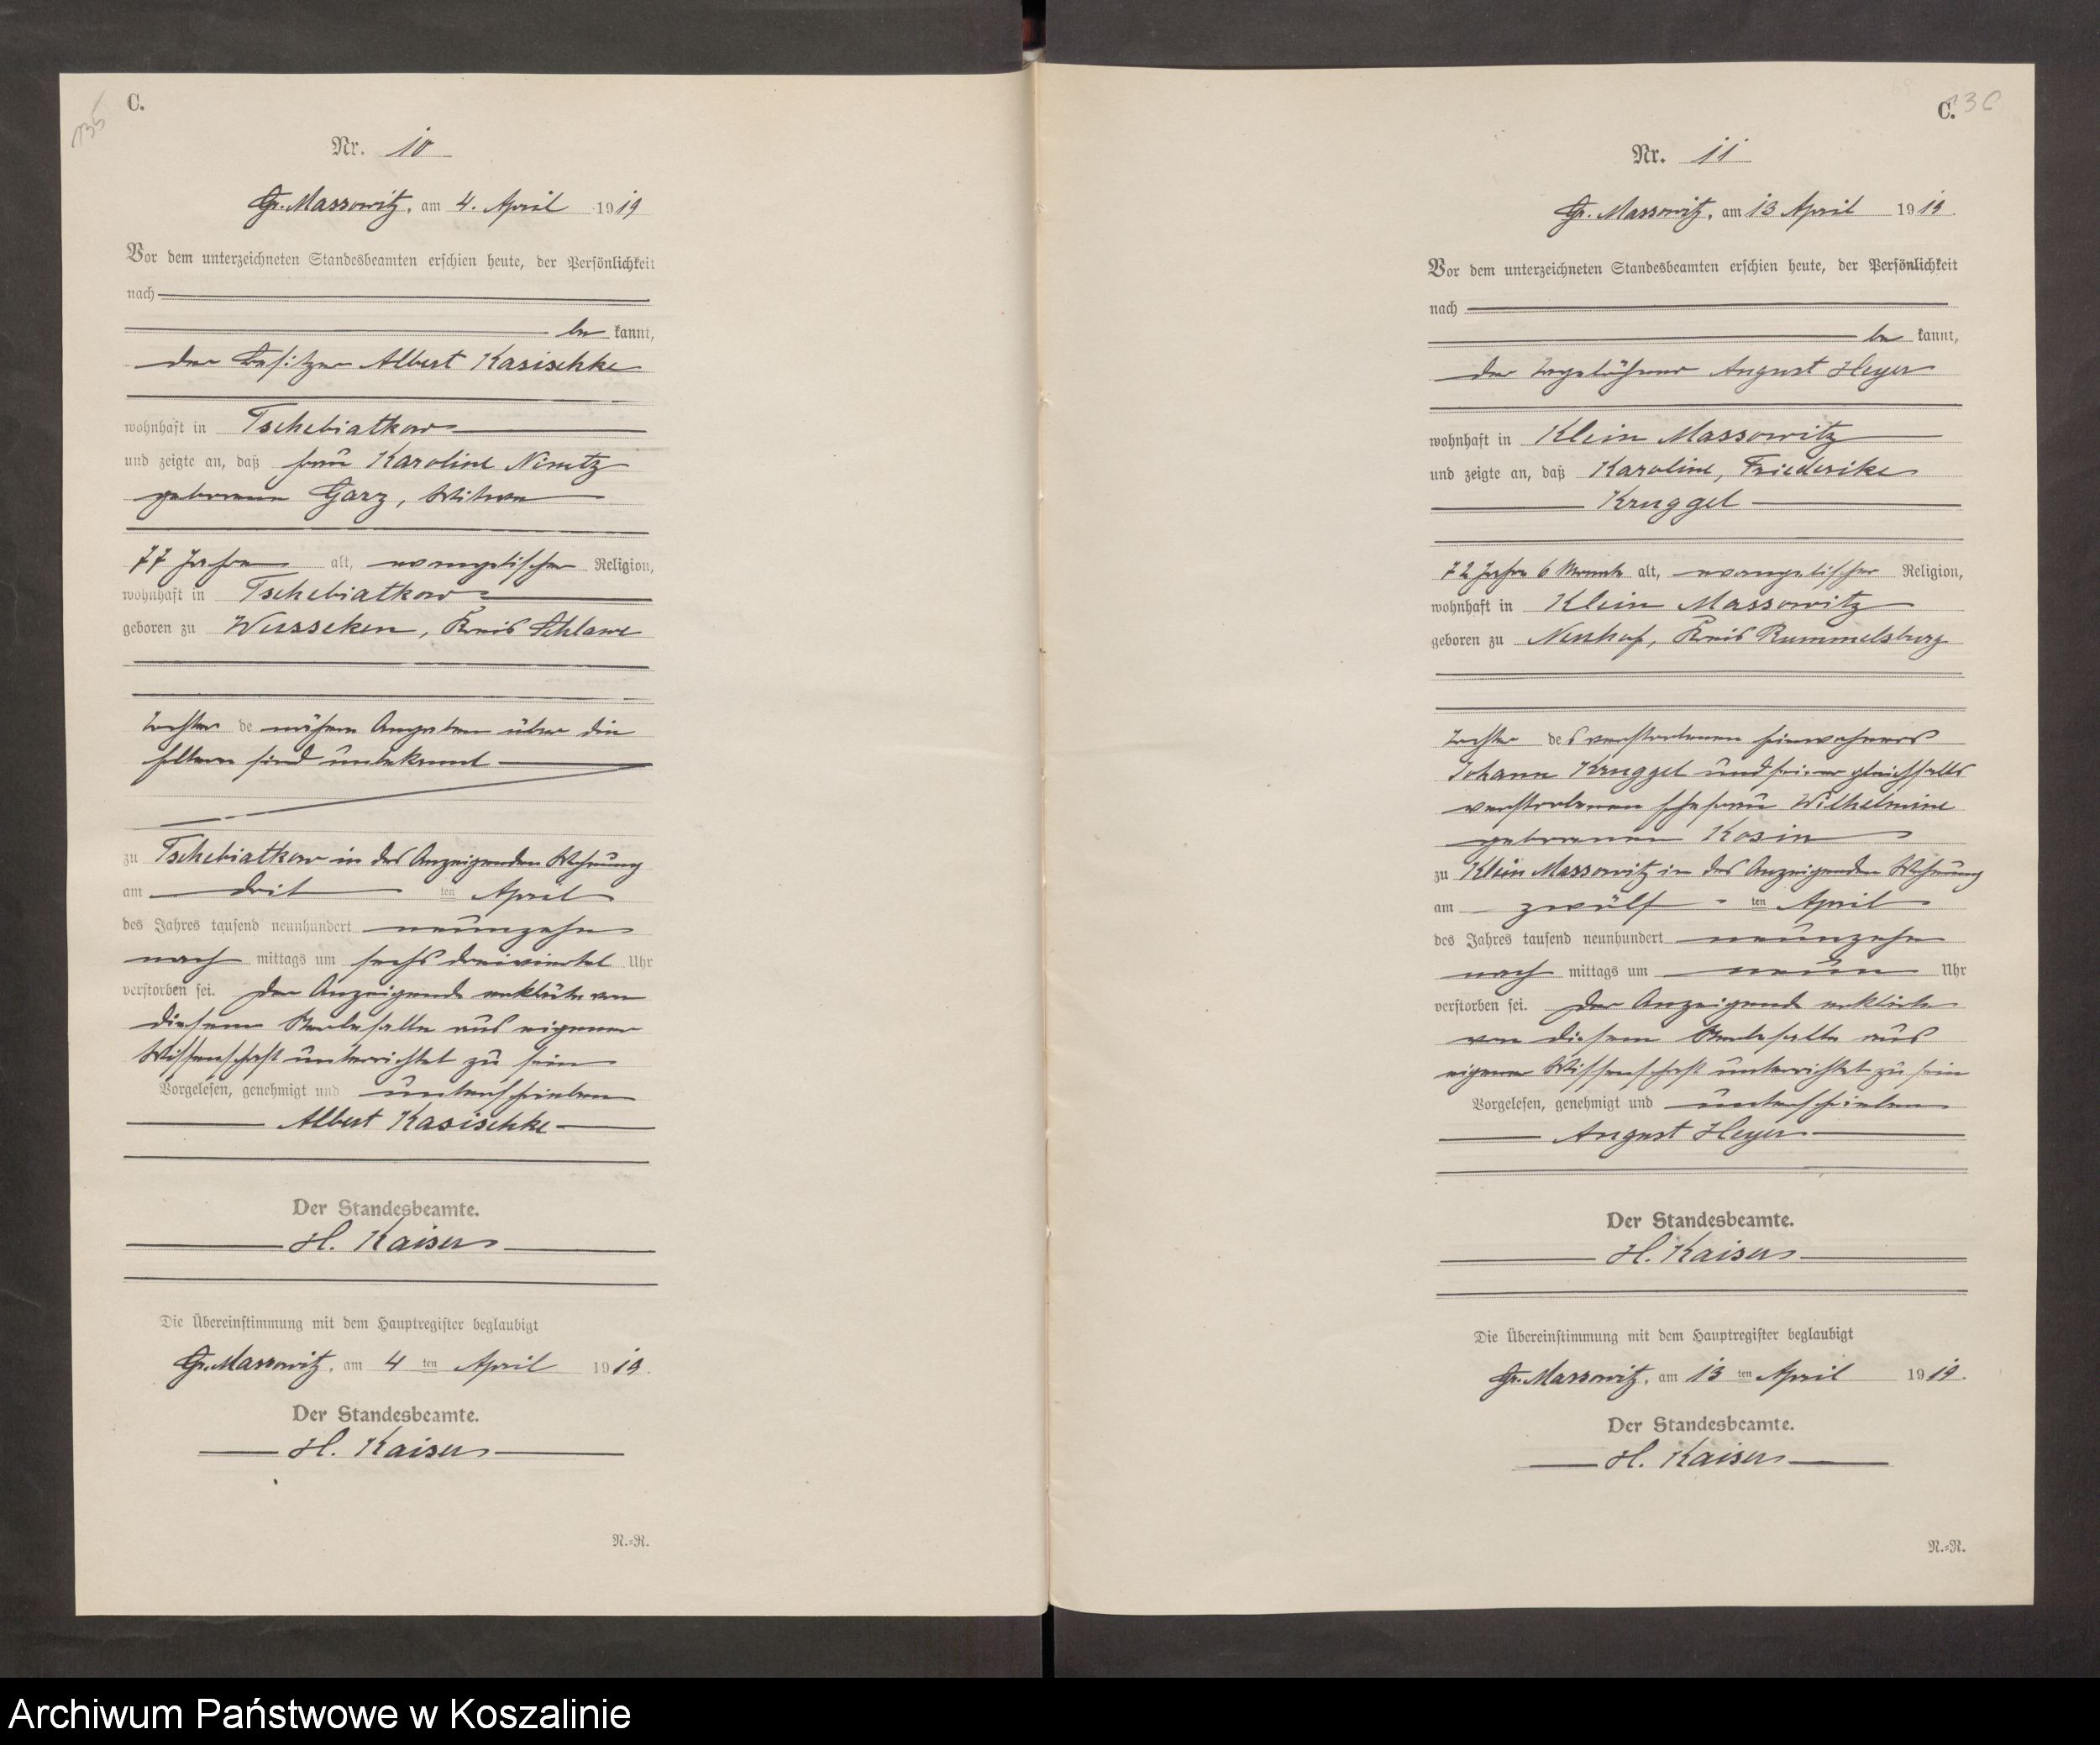 135
C.
Nr. 10
Gr. Massowitz, am 4. April 1919
Vor dem unterzeichneten Standesbeamten erschien heute, der Persönlichkeit
nach
be kannt,
der Besitzer Albert Kasischke
wohnhaft in Tschebiatkow
und zeigte an, daß Frau Karoline Nimtz
geborene Garz, Witwe
77 Jahre alt, evangelischer Religion,
wohnhaft in Tschebiatkow
geboren zu Wusseken, Kreis Schlawe
Tochter de nähere Angaben über die
Eltern sind unbekannt
zu Tschebiatkow in des Anzeigenden Wohnung
am drit ten April
des Jahres tausend neunhundert neunzehn
nach mittags um sechs dreiviertel Uhr
verstorben sei. Der Anzeigende erklärte von
diesem Sterbefalle aus eigener
Wissenschaft unterrichtet zu sein
Vorgelesen, genehmigt und unterschrieben
Albert Kasischke
Der Standesbeamte.
H. Kaiser
Die Übereinstimmung mit dem Hauptregister beglaubigt
Gr. Massowitz, am 4 ten April 1919.
Der Standesbeamte.
H. Kaiser
N.=R.
C. 136
Nr. 11
Gr. Massowitz, am 13 April 1919.
Vor dem unterzeichneten Standesbeamten erschien heute, der Persönlichkeit
nach
be kannt,
der Tagelöhner August Heyer
wohnhaft in Klein Massowitz
und zeigte an, daß Karoline, Friederike
Kruggel
72 Jahre 6 Monate alt, evangelischer Religion,
wohnhaft in Klein Massowitz
geboren zu Neuhof, Kreis Rummelsburg
Tochter des verstorbenen Einwohners
Johann Kruggel und seiner gleichfalls
verstorbenen Ehefrau Wilhelmine
geborenen Kosin
zu Klein Massowitz in des Anzeigenden Wohnung
am zwölf ten April
des Jahres tausend neunhundert neunzehn
nach mittags um neun Uhr
verstorben sei. Der Anzeigende erklärte
von diesem Sterbefalle aus
eigener Wissenschaft unterrichtet zu sein
Vorgelesen, genehmigt und unterschrieben
August Heyer
Der Standesbeamte.
H. Kaiser
Die Übereinstimmung mit dem Hauptregister beglaubigt
Gr. Massowitz, am 13 ten April 1919.
Der Standesbeamte.
H. Kaiser
N.=R.
Archiwum Państwowe w Koszalinie